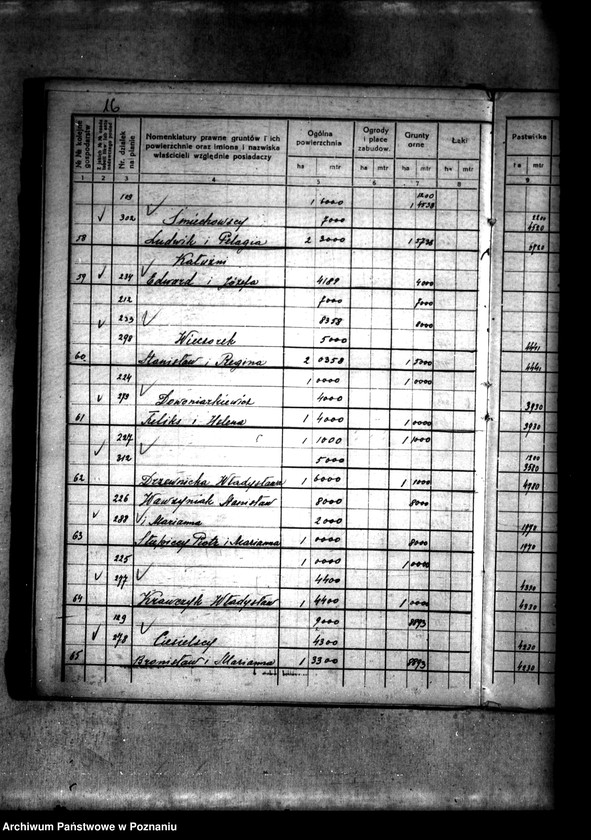 16
№ № kolejne gospodarstw
Nr. działek na planie
Nomenklatury prawne gruntów i ich powierzchnie oraz imiona i nazwiska właścicieli względnie posiadaczy
Ogólna powierzchnia
Ogrody i place zabudow.
Grunty orne
Łąki
Pastwiska
ha mtr ha mtr ha mtr ha mtr ha mtr
1 2 3 4 5 6 7 8 9
302 Śmiechowscy 7000
58 Ludwik i Pelagia 2 3000
Kałużni
59 234 Edward i Józefa 4189 4000
212 7000 7000
233 8358 8000
298 Wieczorek 5000 4441
60 Stanisław i Regina 2 0358 1 5000 4441
224 1 0000 1 0000
4000 3930
61 Feliks i Helena 1 4000 1 0000 3930
227 1 1000 1 1000
312 5000
62 Drzewnicka Władysława 1 6000 1 1000 4780
226 Wawrzyniak Stanisław 8000 8000
288 i Marianna 2000 1970
63 Piotr i Marianna 1 0000 8000 1970
225 1 0000 1 0000
277 4400 4330
64 Krawczyk Władysław 1 4400 1 0000 4330
129 9000 8893
278 Ciesielscy 4300 4230
65 Bronisław i Marianna 1 3300 8893 4230
Archiwum Państwowe w Poznaniu